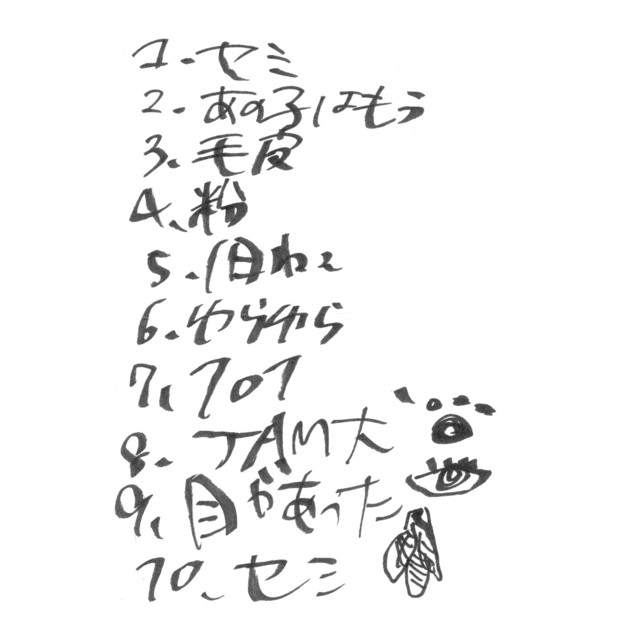 1. セミ
2. あの子はもう
3、毛皮
4、粉
5. 1日ねぇ
6. ゆらゆら
7、
8. JAM大
9、目があった
10、セミ